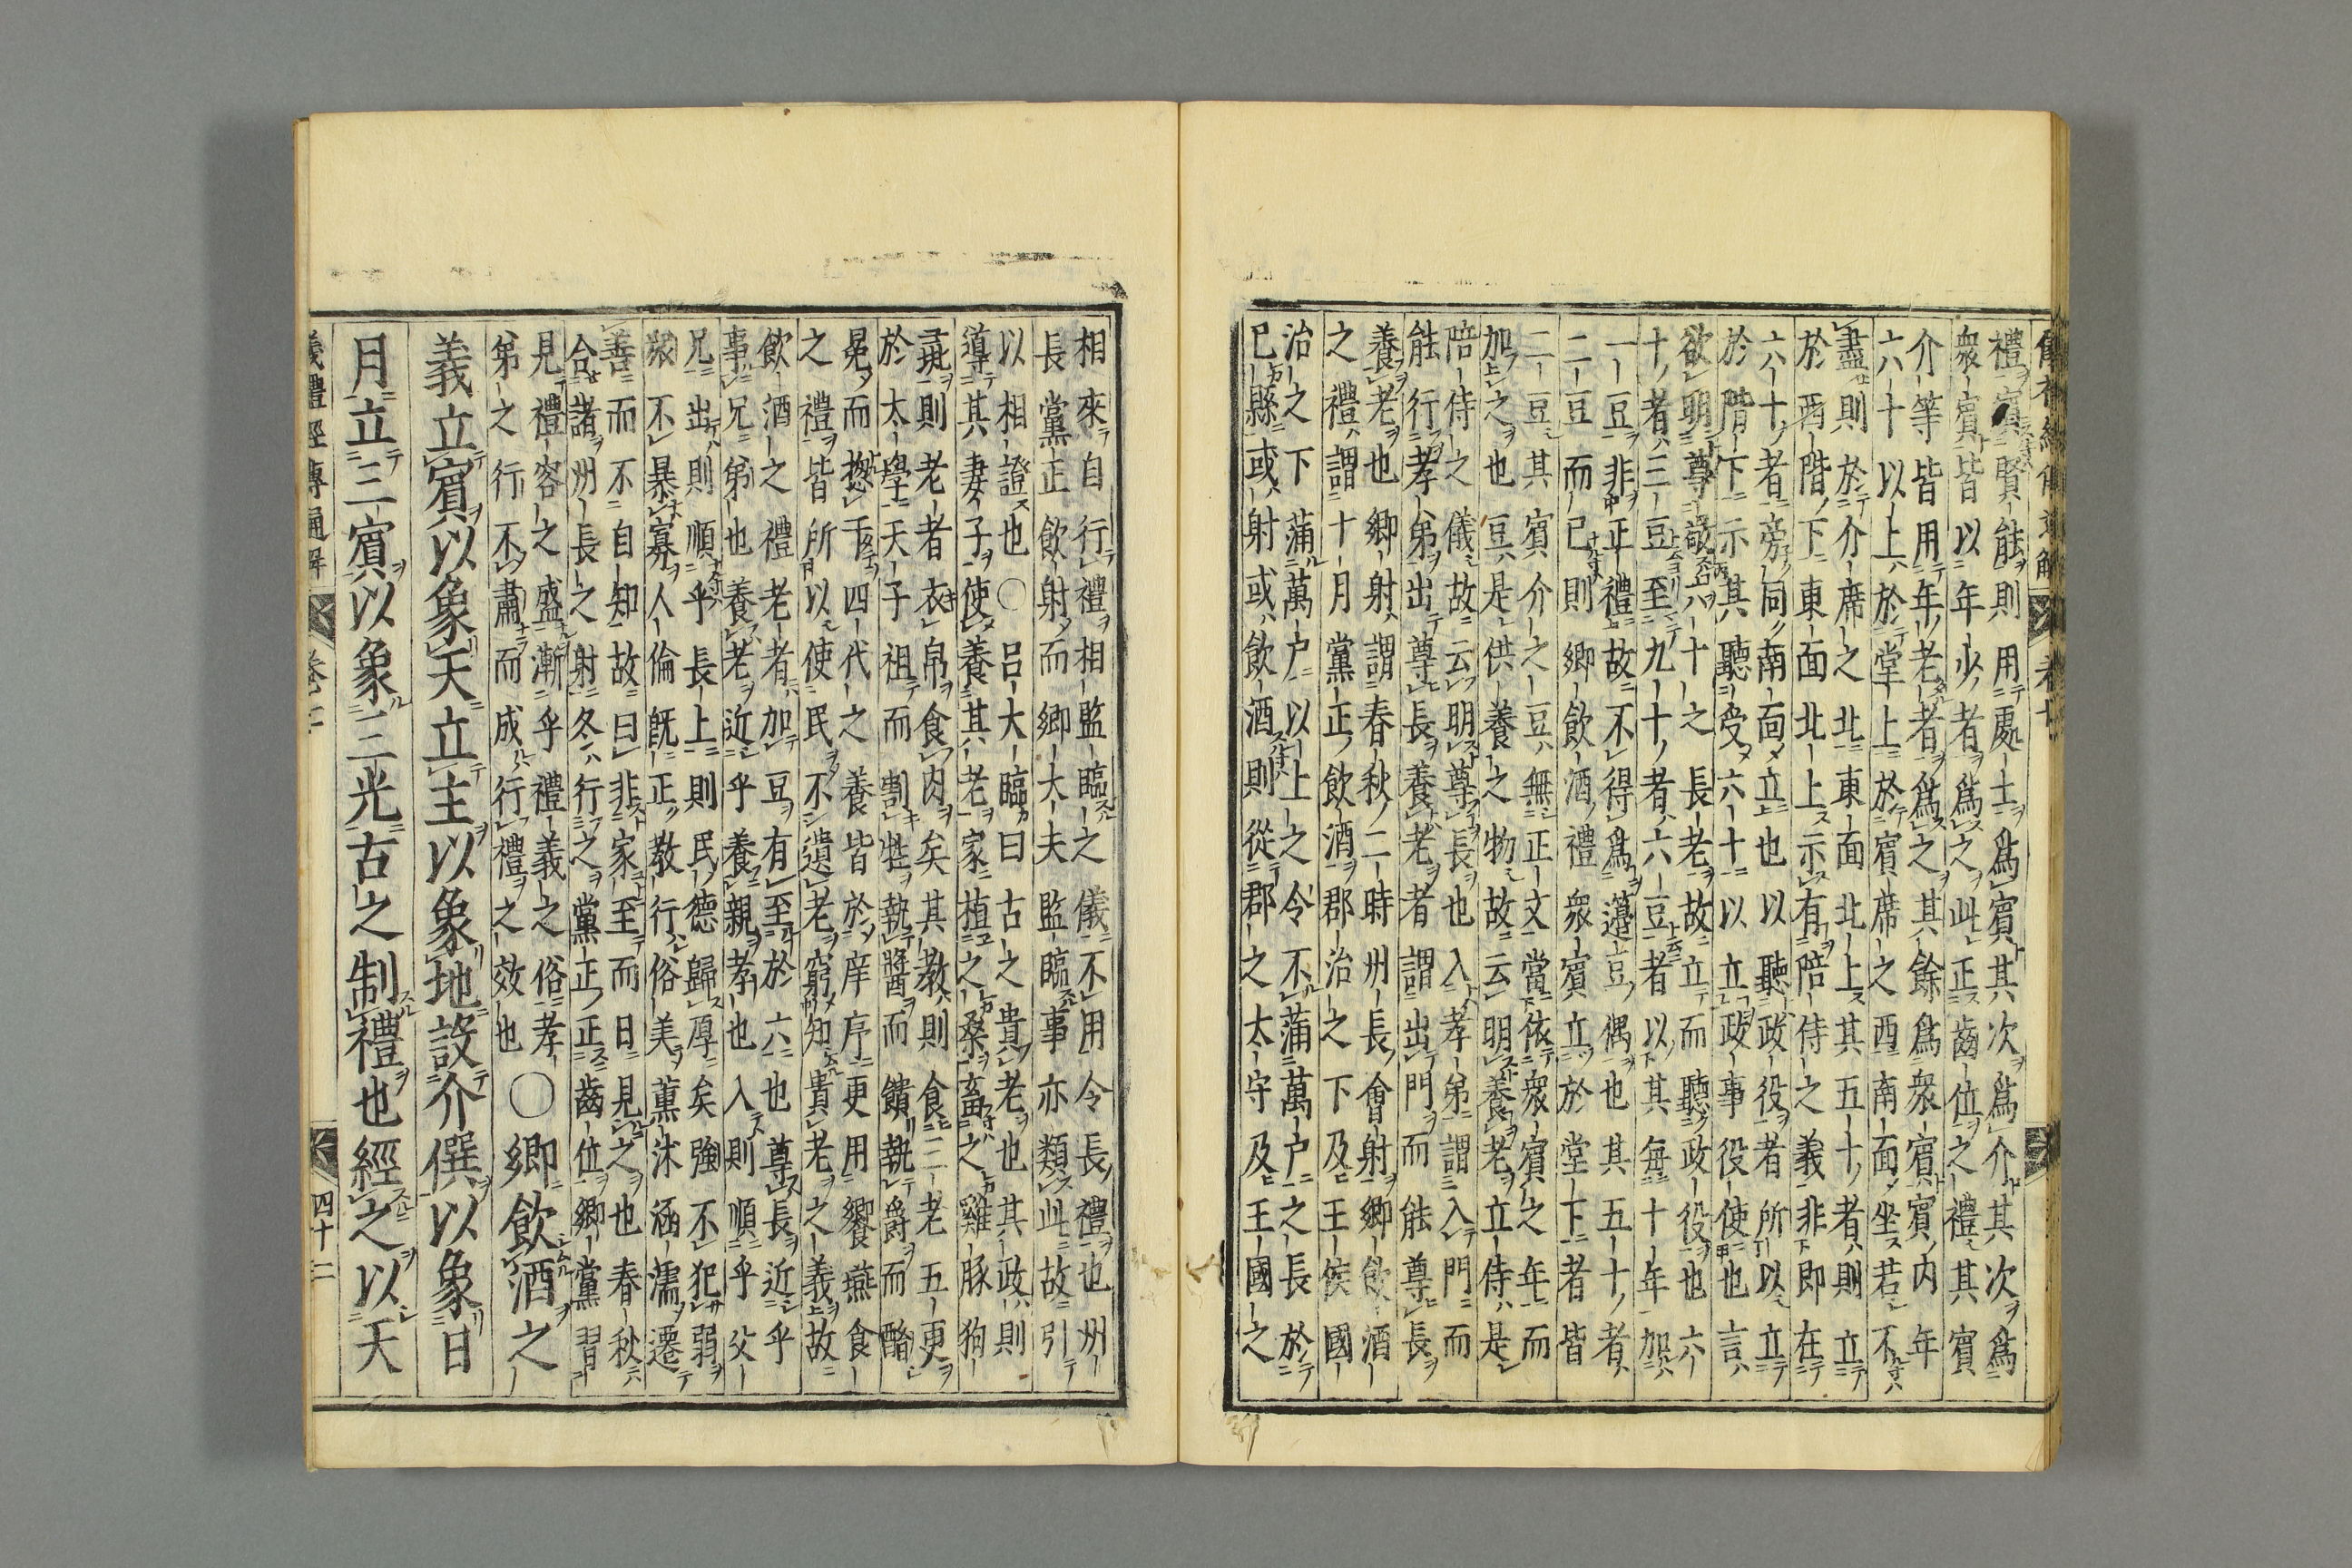 禮賓賢能則用處士爲賓其次爲介其次爲
衆賓皆以年少者爲之此正齒位之禮其賓
介等皆用年老者爲之其餘爲衆賓賓内年
六十以上於堂上於賓席之西南面坐若不
盡則於介席之北東面北上其五十者則立
於西階下東面北上示有陪侍之義非即在
六十者旁同南面立也以聽政役者所以立
於階下示其聽受六十以立政事役使也言
欲明尊敬六十之長老故立而聽政役也六
十者三豆至九十者六豆者以其每十年加
一豆非正禮故不得爲籩豆偶也其五十者
二豆而已則鄉飲酒禮衆賓立於堂下者皆
二豆其賓介之豆無正文當依衆賓之年而
加之也豆是供養之物故云明養老立侍是
陪侍之儀故云明尊長也入孝弟謂入門而
能行孝弟出尊長養老者謂出門而能尊長
養老也鄉射謂春秋二時州長會射鄉飲酒
之禮謂十月黨正飲酒郡治之下及王侯國
治之下蒲萬戸以上之令不蒲萬戸之長於
已縣或射或飲酒則從郡之太守及王國之
相來自行禮相監臨之儀不用令長禮也州
長黨正飲射而鄉大夫監臨事亦類此故引
以相證也〇呂大臨曰古之貴老也其政則
導其妻子使養其老家植之桑畜之雞豚狗
彘則老者衣帛食肉矣其教則食三老五更
於太學天子祖而割牲執醬而饋執爵而酳
冕而揔干四代之養皆於庠序更用饗燕食
之禮皆所以使民不遺老窮知貴老之義故
飲酒之禮老者加豆有至於六也尊長近乎
事兄弟也養老近乎養親孝也入則順乎父
兄出則順乎長上則民德歸厚矣強不犯弱
衆不暴寡人倫既正教行俗美薰沐涵濡遷
善而不自知故曰非家至而日見之也春秋
合諸州長之射冬行之黨正正齒位鄉黨習
見禮容之盛漸乎禮義之俗孝
弟之行不肅而成行禮之效也〇鄉飲酒之
義立賓以象天立主以象地設介僎以象日
月立三賓以象三光古之制禮也經之以天
義禮經傳通解 卷七 四十二